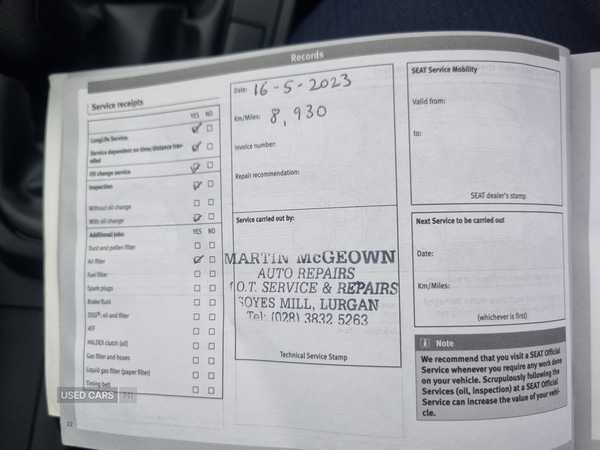 Records
Service receipts
YES NO
LongLife Service:
Service dependent on time/distance trav-
elled
Oil change service
Inspection
Without oil change
With oil change
Additional jobs: YES NO
Dust and pollen filter
Air filter
Fuel filter
Spark plugs
Brake fluid
DSG®: oil and filter
ATF
HALDEX clutch (oil)
Gas filter and hoses
Liquid gas filter (paper filter)
Timing belt
22
Date: 16-5-2023
Km/Miles: 8,930
Invoice number:
Repair recommendation:
Service carried out by:
MARTIN McGEOWN
AUTO REPAIRS
O.T. SERVICE & REPAIRS
SOYES MILL, LURGAN
Tel: (028) 3832 5263
Technical Service Stamp
SEAT Service Mobility
Valid from:
to:
SEAT dealer's stamp
Next Service to be carried out
Date:
Km/Miles:
(whichever is first)
i Note
We recommend that you visit a SEAT Official
Service whenever you require any work done
on your vehicle. Scrupulously following the
Services (oil, inspection) at a SEAT Official
Service can increase the value of your vehi-
cle.
USED CARS NI